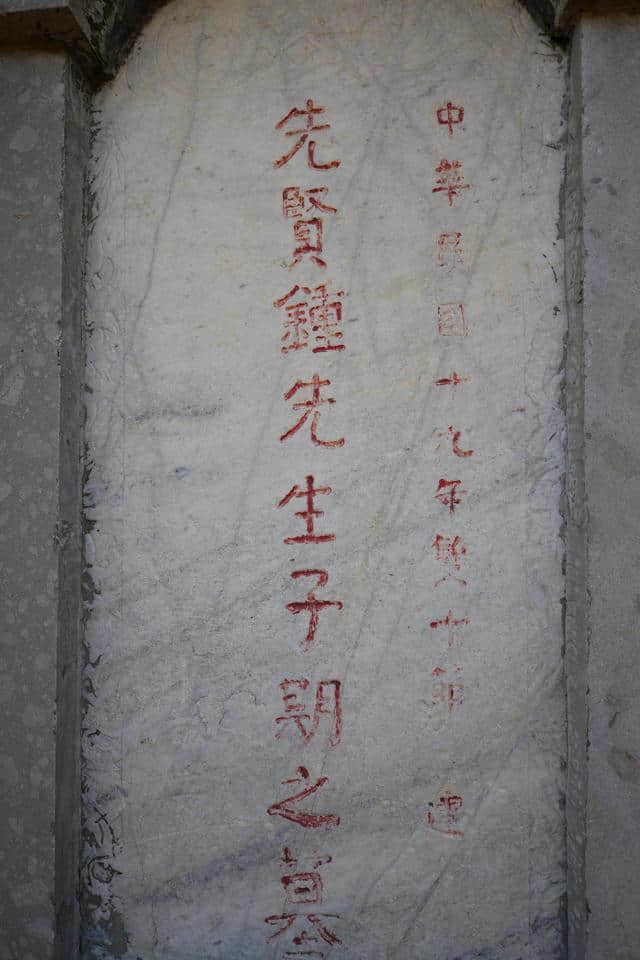 中華民國十九年雙十節 建
先賢鍾先生子期之墓